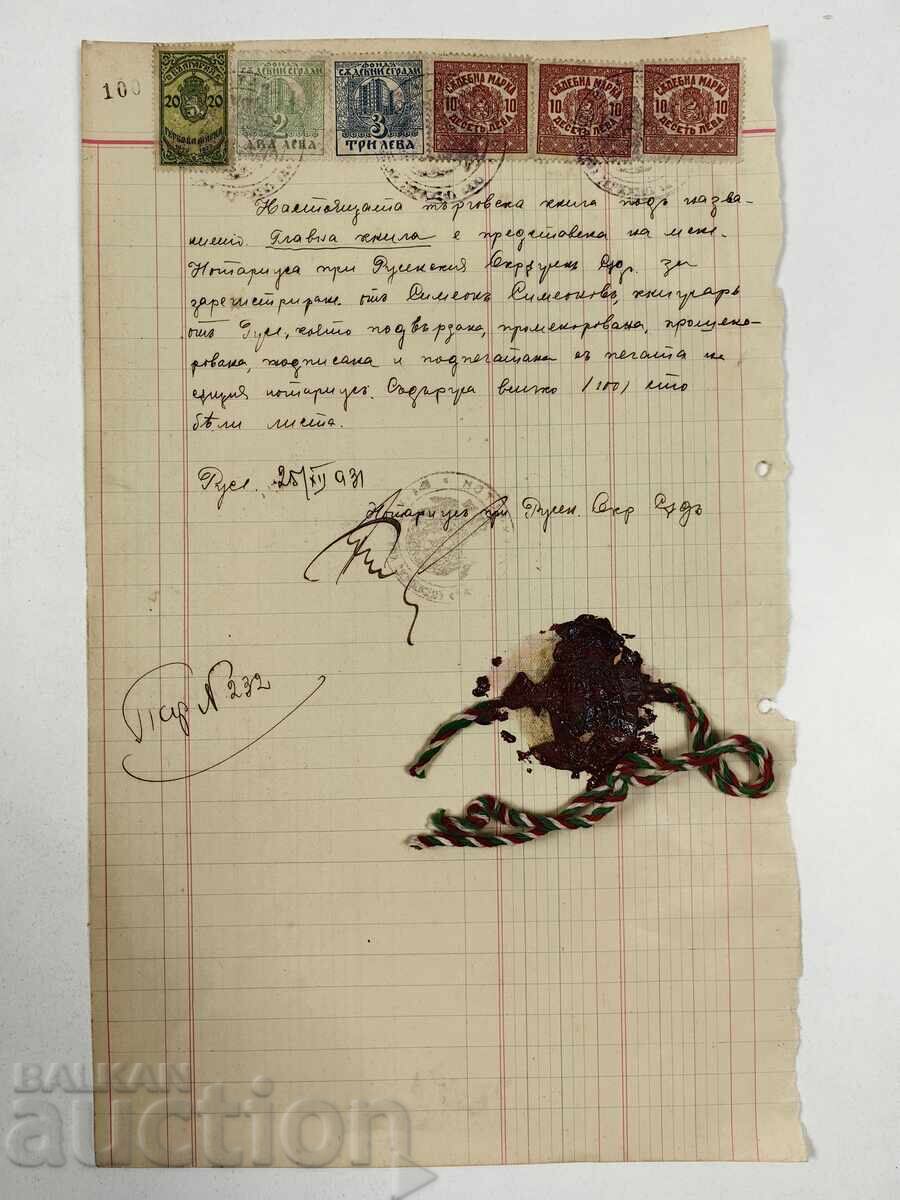 100
БЪЛГАРИЯ
20 20
ГЕРБОВА МАРКА
ФОНДЪ
СѪДЕБНИ СГРАДИ
2
ДВА ЛЕВА
ФОНДЪ
СѪДЕБНИ СГРАДИ
3
ТРИ ЛЕВА
СѪДЕБНА МАРКА
10 10
ДЕСЕТЬ ЛЕВА
СѪДЕБНА МАРКА
10 10
ДЕСЕТЬ ЛЕВА
СѪДЕБНА МАРКА
10 10
ДЕСЕТЬ ЛЕВА
Настоящата търговска книга подъ назва-
нието Главна книга е представена на мене
Нотариуса при Русенския Окрѫженъ Сѫд. за
зарегистриране отъ Симеонъ Симеоновъ, книжарь
отъ Русе, която подвързана, прономерована, прошно-
рована, подписана и подпечатана съ печата на
сѫщия нотариусъ. Съдържа всичко /100/ сто
бѣли листа.
Русе. 25/XII 931
Нотариусъ при Русен. Окр Сѫдъ
№ 232
BALKAN
auction